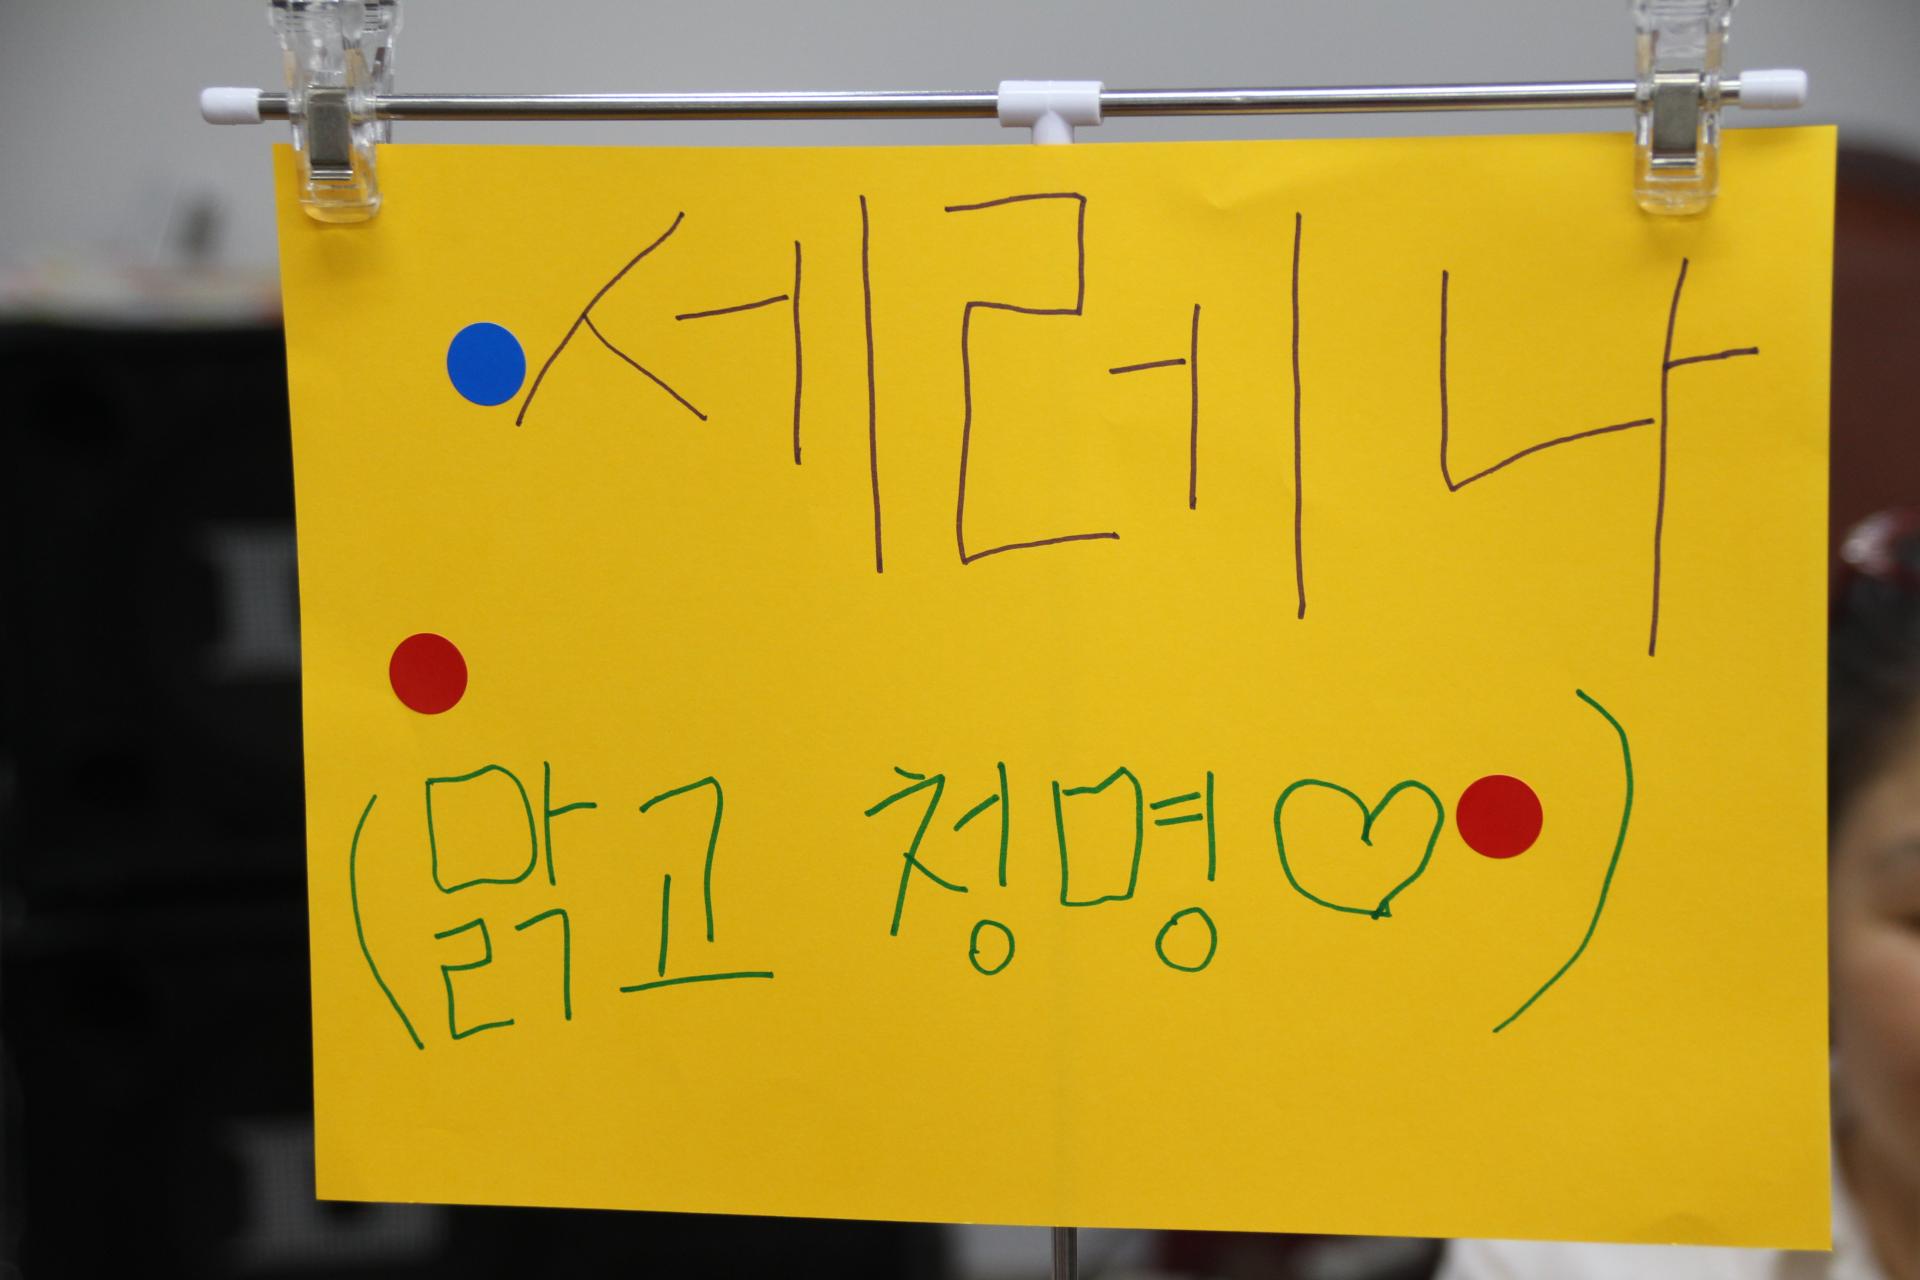 세레나
(맑고 청명♡)